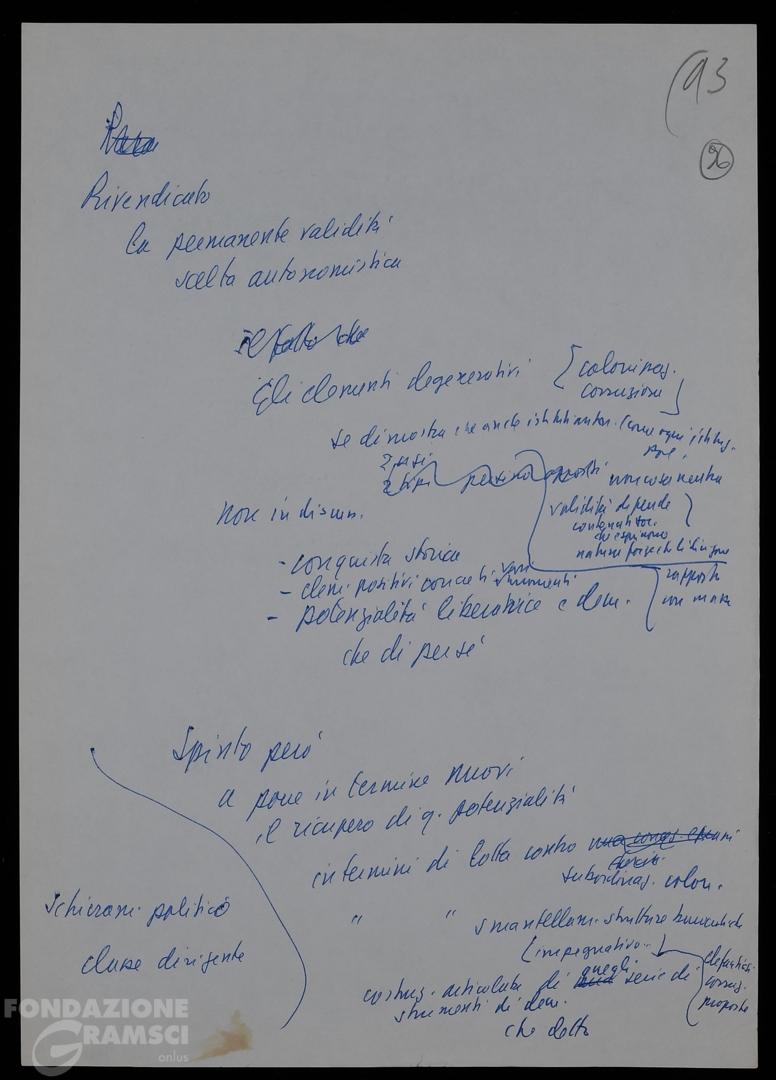 93
26
Rivendicato
la permanente validità
scelta autonomistica
il fatto che
Gli elementi degenerativi
[colonizzaz.
corruzione]
se dimostra che anche istituti auton. (come ogni istituz.
2 fasi
persino opposti
non cosa neutra
validità dipende
contenuti
che esprimono
natura forze che li dirigono
non in discuss.
- conquista storica
- elem. positivi concreti vari strumenti
- potenzialità liberatrice e dem.
rapporti
con masse
che di per sé
Spinto però
a porre in termine nuovi
il recupero di q. potenzialità
in termini di lotta contro
subordinaz. colon.
" " smantellam. strutture burocratiche
(impegnativo..)
Schieram. politico
classe dirigente
costruz. articolata di quegli serie di
strumenti di dem.
proposte
che detto
FONDAZIONE
GRAMSCI
onlus